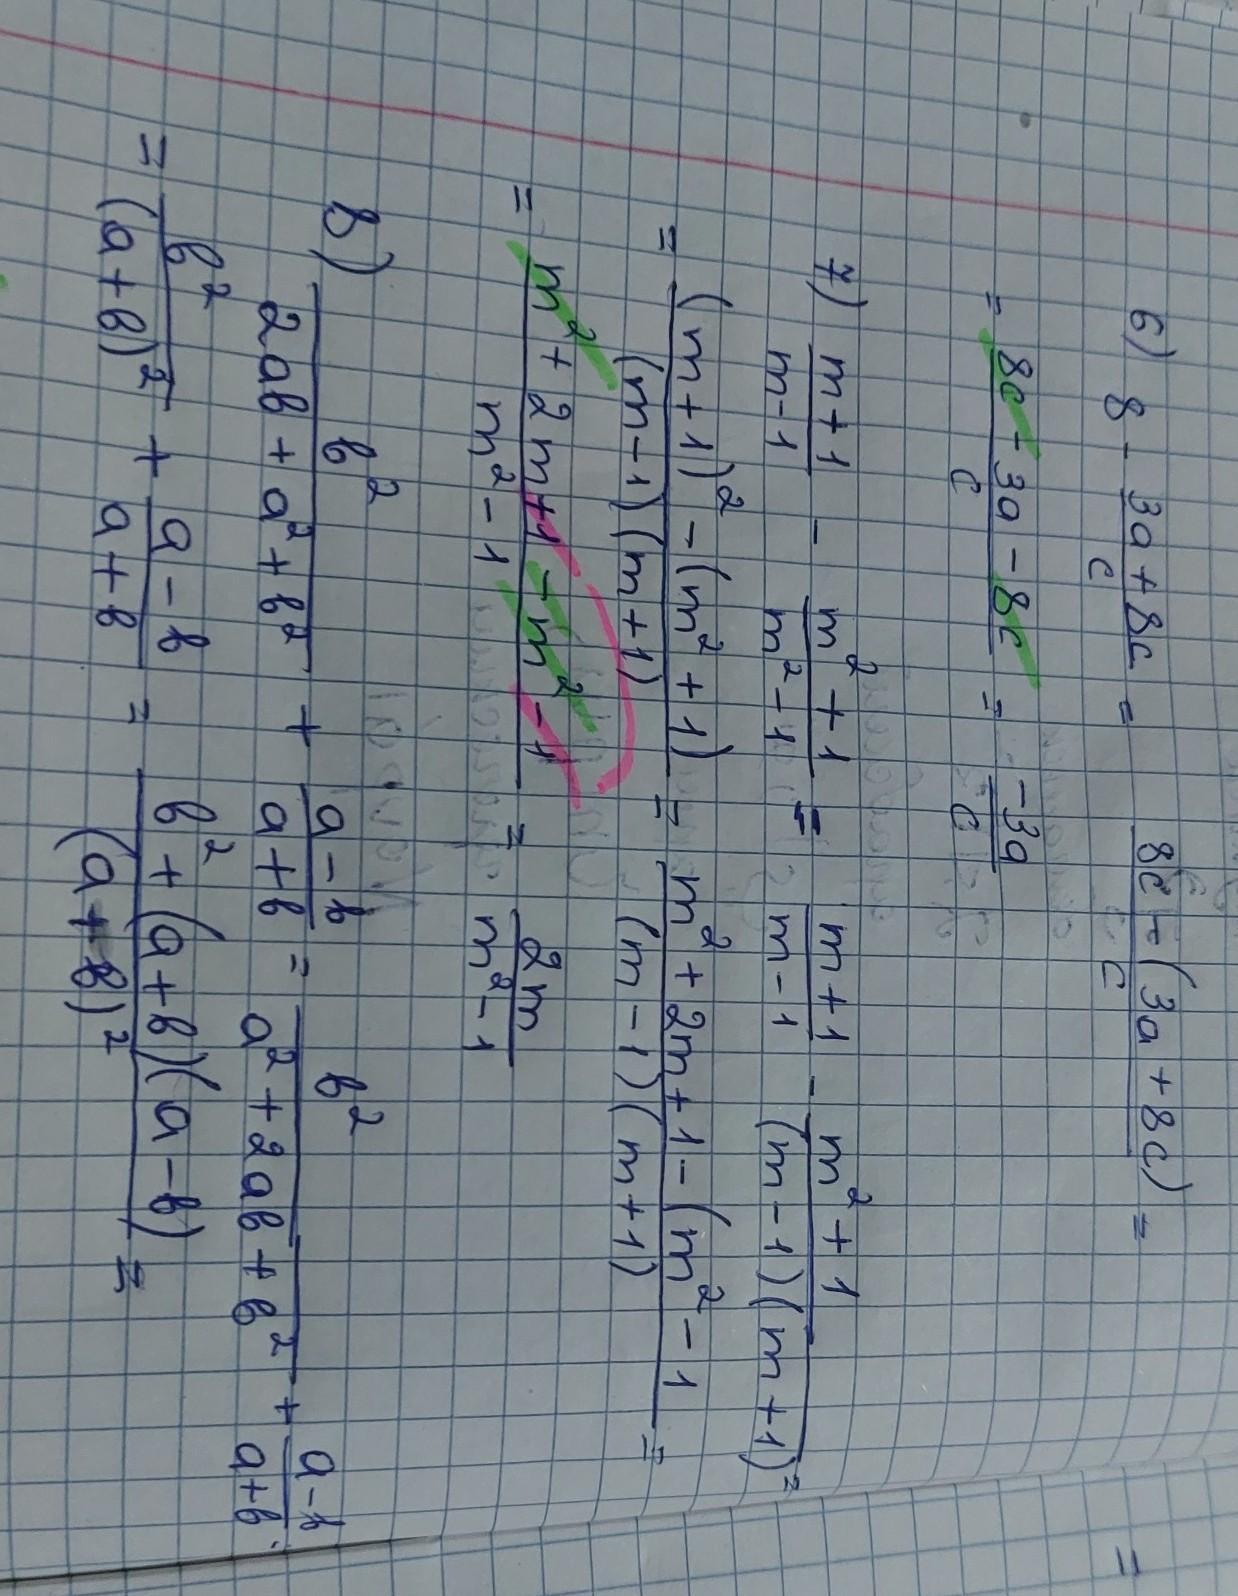 6) 8 - (3a+8c)/c = (8c-(3a+8c))/c =
= (8c-3a-8c)/c = (-3a)/c
7) (m+1)/(m-1) - (m²+1)/(m²-1) = (m+1)/(m-1) - (m²+1)/((m-1)(m+1)) =
= ((m+1)²-(m²+1))/((m-1)(m+1)) = (m²+2m+1-(m²-1)/((m-1)(m+1)) =
= (m²+2m+1-m²-1)/(m²-1) = 2m/(m²-1)
в) b²/(2ab+a²+b²) + (a-b)/(a+b) = b²/(a²+2ab+b²) + (a-b)/(a+b)
= b²/(a+b)² + (a-b)/(a+b) = (b²+(a+b)(a-b))/(a+b)² =